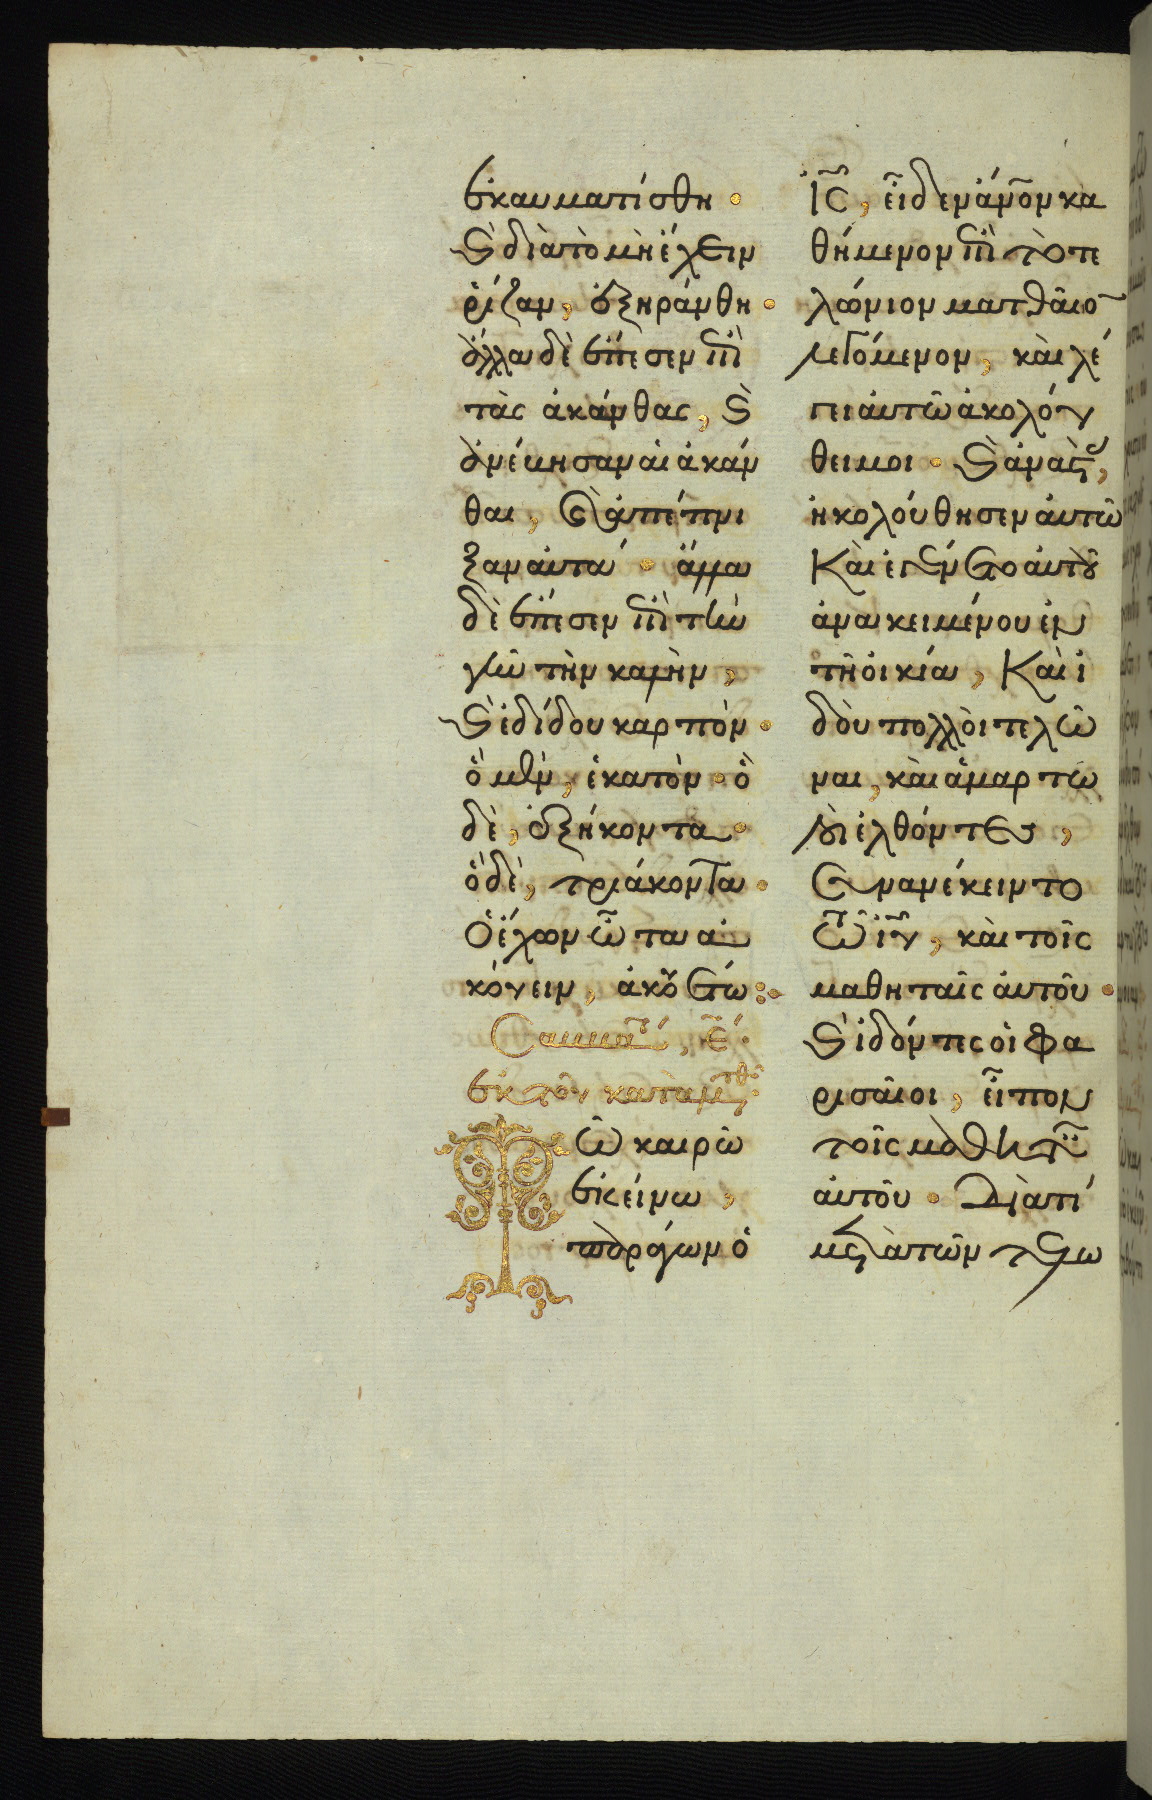 ἐκαυματίσθη·
καὶ διὰ τὸ μὴ ἔχειν
ῥίζαν, ἐξηράνθη·
ἄλλα δὲ ἔπεσεν ἐπὶ
τὰς ἀκάνθας, καὶ
ἀνέβησαν αἱ ἀκάν
θαι, καὶ ἀπέπνι
ξαν αὐτά· ἄλλα
δὲ ἔπεσεν ἐπὶ τὴν
γῆν τὴν καλὴν,
καὶ ἐδίδου καρπόν·
ὁ μὲν, ἑκατὸν· ὁ
δὲ, ἑξήκοντα·
ὁ δὲ, τριάκοντα·
Ὁ ἔχων ὦτα ἀ
κούειν, ἀκουέτω:·
Σαββάτῳ, ε̄·
ἐκ τοῦ κατὰ Μτθ·
Τῶ καιρῶ
ἐκείνω,
παράγων ὁ
ἸC, εἶδεν ἄνον κα
θήμενον ἐπὶ τὸ τε
λώνιον ματθαῖο
λεγόμενον, καὶ λέ
γει αὐτῶ ἀκολού
θει μοι· καὶ ἀναστὰς,
ἠκολούθησεν αὐτῶ
Καὶ ἐγένετο αὐτοῦ
ἀνακειμένου ἐν
τῆ οἰκία, Καὶ ἰ
δοὺ πολλοὶ τελῶ
ναι, καὶ ἁμαρτω
λοὶ ἐλθόντες,
συνανέκειντο
τῶ ἰυ, καὶ τοῖς
μαθηταῖς αὐτοῦ·
καὶ ἰδόντες οἱ φα
ρισαῖοι, εἶπον
τοῖς μαθηταῖς
αὐτοῦ· Διατί
μετὰ τῶν τελω